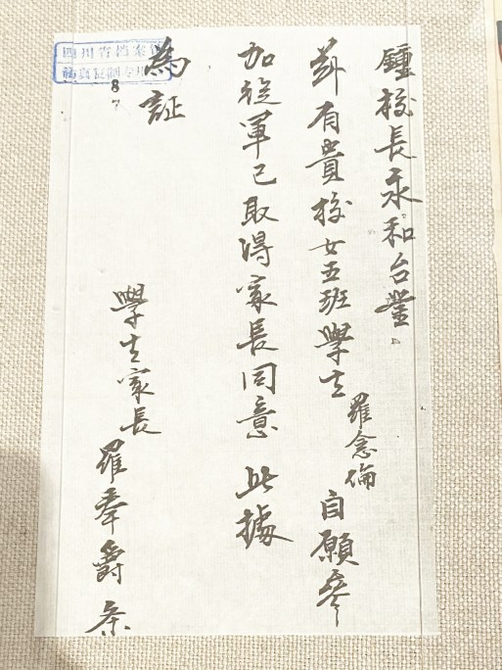 鍾校長永和台鑒：
茲有貴校女五班學生羅念倫自願參
加從軍已取得家長同意 此據
為証
學生家長
羅奉爵条
四川省档案館
8
7